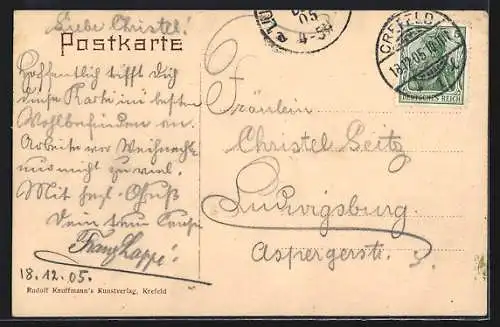 Liebe Christel!
Postkarte
Hoffentlich trifft Dich
diese Karte im besten
Wohlbefinden an.
Arbeite vor Weihnachten
nur nicht zu viel.
Mit herzl. Gruß
Dein
Franz Lappe!
18.12.05.
Rudolf Kauffmann's Kunstverlag, Krefeld
05
4-5
CREFELD
18.12.05
DEUTSCHES REICH
Fräulein
Christel Seitz
Ludwigsburg.
Aspergerstr.